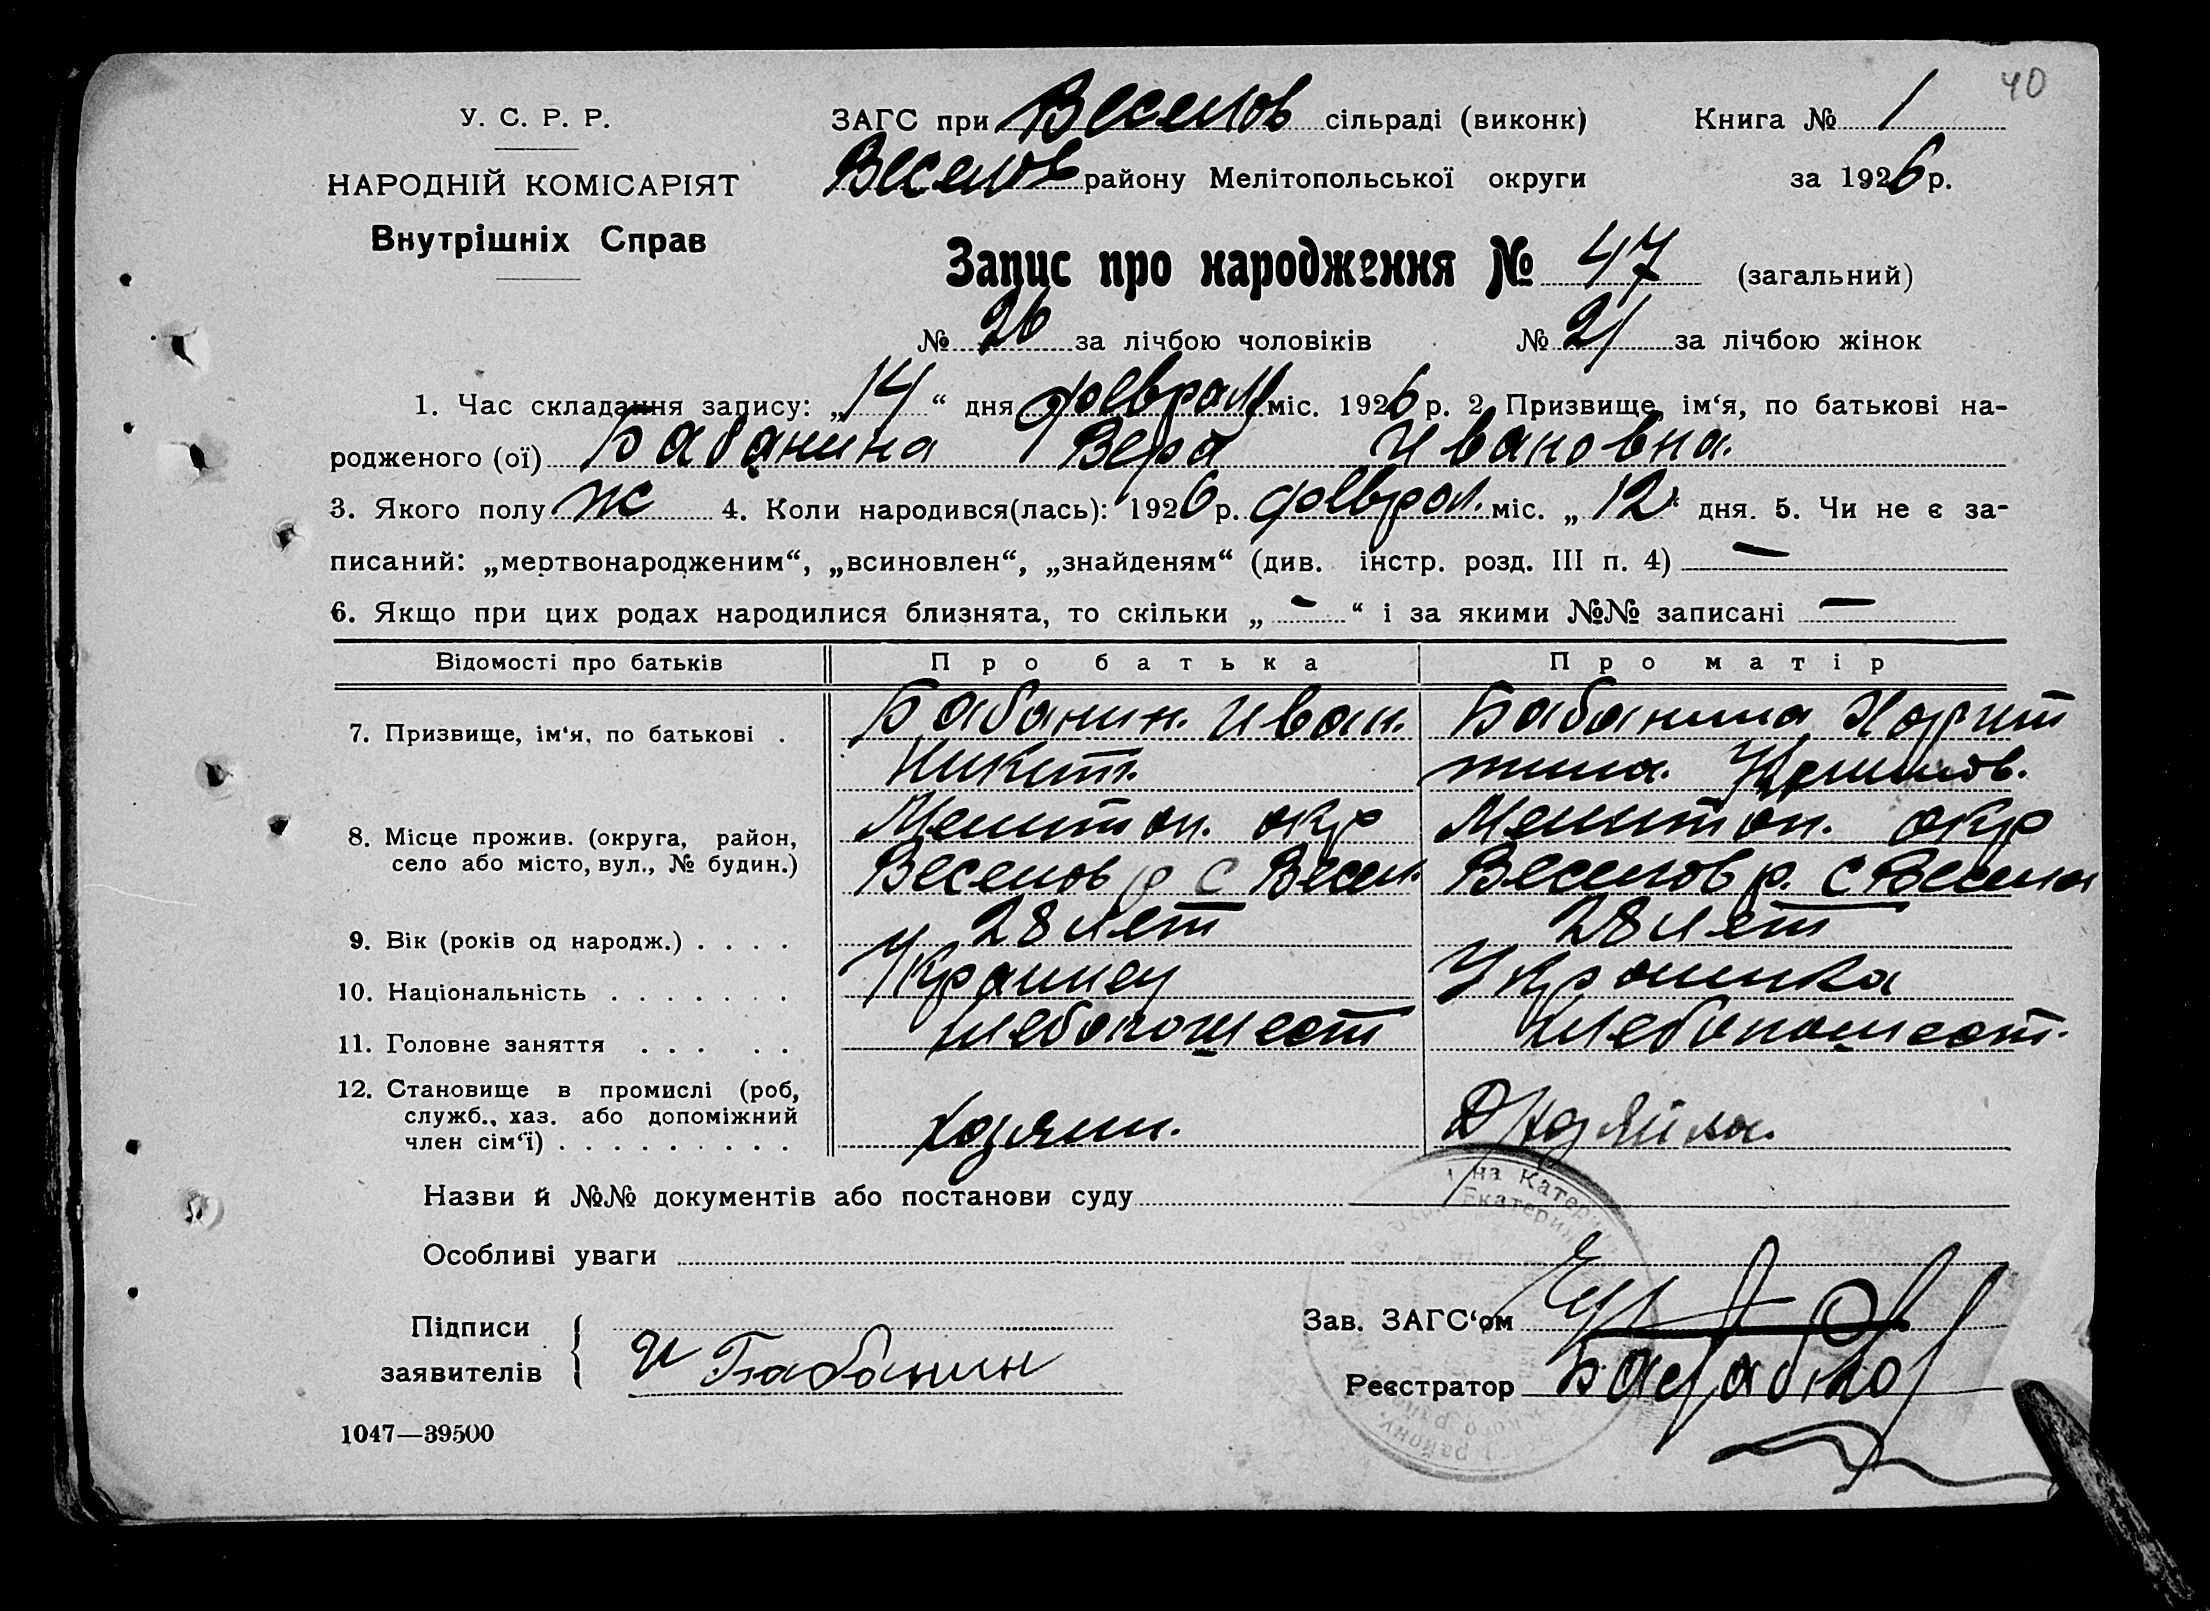 40
У. С. Р. Р.
НАРОДНІЙ КОМІСАРІЯТ
Внутрішніх Справ
ЗАГС при Веселов сільраді (виконк) Книга № 1
Веселов району Мелітопольської округи за 1926 р.
Запис про народження № 47 (загальний)
№ 26 за лічбою чоловіків № 21 за лічбою жінок
1. Час складання запису: „14“ дня феврал міс. 1926 р. 2. Призвище, ім‘я, по батькові на-
родженого (ої) Бабанина Вера Ивановна.
3. Якого полу ж 4. Коли народився(лась): 1926 р. феврал. міс. „12“ дня. 5. Чи не є за-
писаний: „мертвонародженим“, „всиновлен“, „знайденям“ (див. інстр. розд. III п. 4) —
6. Якщо при цих родах народилися близнята, то скільки „ - “ і за якими №№ записані —
Відомості про батьків Про батька Про матір
7. Призвище, ім‘я, по батькові . Бабанин. Иван. Бабанина Харит
Никит. тина.
8. Місце прожив. (округа, район, Мелитоп. окр Мелитоп. окр
село або місто, вул., № будин.) Веселов р с Весел. Веселов р. с Весела
9. Вік (років од народж.) . . . . 28 лет 28 лет
10. Національність . . . . . . . Украинец Украинка
11. Головне заняття . . . . . хлебопашест хлебопашест.
12. Становище в промислі (роб,
служб., хаз. або допоміжний
член сім‘ї) . . . . . . . . . хозяин.
Назви й №№ документів або постанови суду
Особливі уваги
Підписи
заявителів И Бабанин
Зав. ЗАГС‘ом
Реєстратор
1047—39500